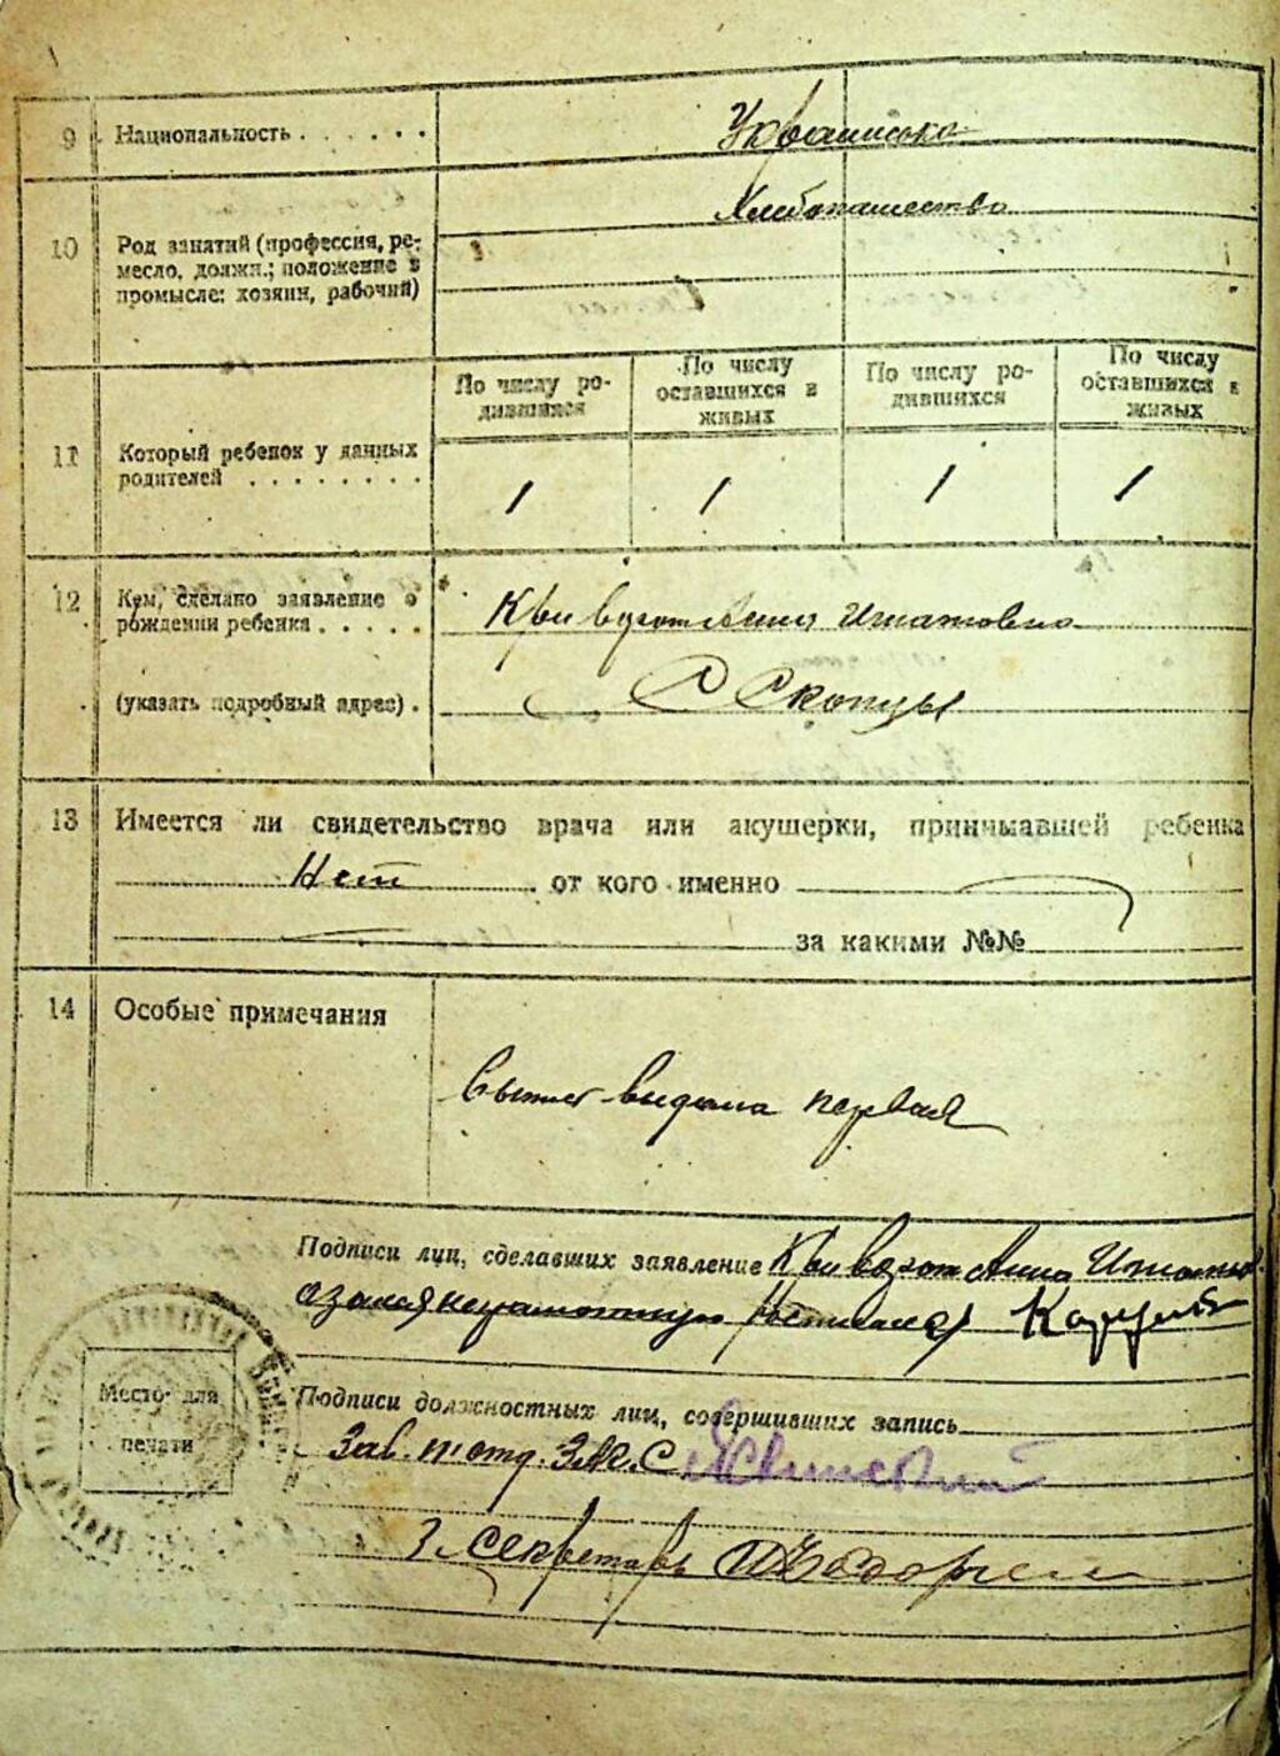 9 Национальность . . . . . . Украинска
Хлебопашество
10 Род занятий (профессия, ре-
месло, должн.; положение в
промысле: хозяин, рабочий)
По числу ро-
дившихся
По числу
оставшихся в
живых
По числу ро-
дившихся
По числу
оставшихся в
живых
11 Который ребенок у данных
родителей . . . . . . . . 1 1 1 1
12 Кем, сделано заявление о
рождении ребенка . . . . .
(указать подробный адрес) . С Скопцы
13 Имеется ли свидетельство врача или акушерки, принимавшей ребенка
Нет от кого именно
за какими №№
14 Особые примечания
выдана первая
Подписи лиц, сделавших заявление
Место для
печати
Подписи должностных лиц, совершивших запись
Зав.
Секретарь